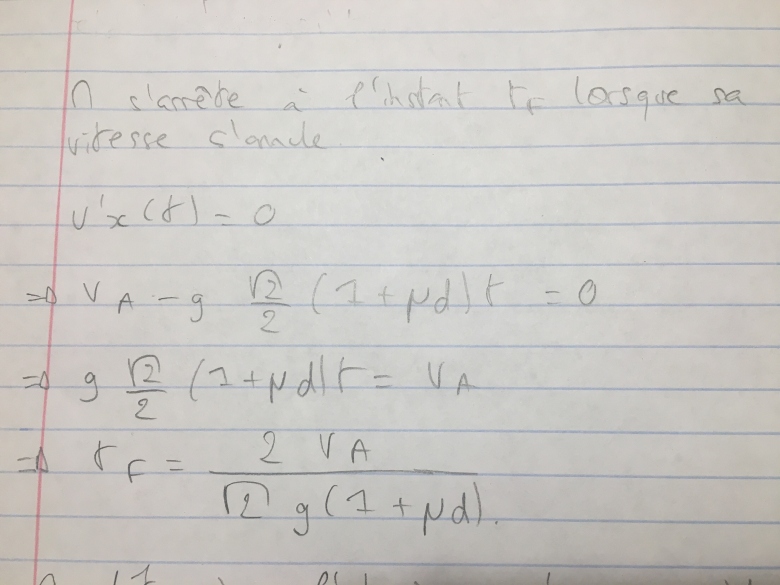 M s'arrête à l'instant t_F lorsque sa
vitesse s'annule
v'x(t) = 0
⇒ V_A - g √2/2 (1 + μd)t = 0
⇒ g √2/2 (1 + μd)t = V_A
⇒ t_F = 2 V_A / (√2 g (1 + μd)).